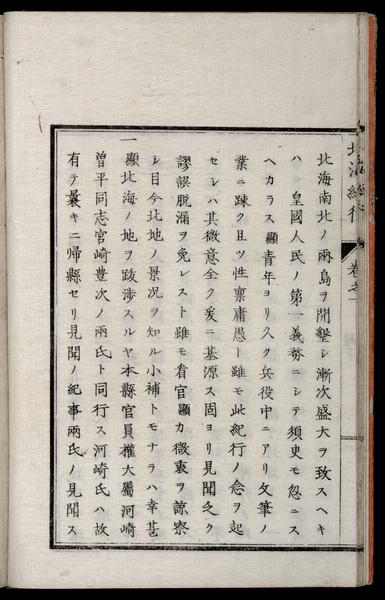 北海南北ノ兩島ヲ開墾シ漸次盛大ヲ致スヘキ
ハ　皇國人民ノ第一義務ニシテ須臾モ忽ニス
ヘカラス顯青年ヨリ久ク兵役中ニアリ文筆ノ
業ニ疎ク且ツ性禀庸愚ト雖モ此紀行ノ念ヲ起
セシハ其微意全ク爰ニ基源ス固ヨリ見聞乏ク
謬誤脱漏ヲ免レスト雖モ看官顯カ微衷ヲ諒察
シ目今北地ノ景况ヲ知ル小補トモナラハ幸甚
一顯北海ノ地ヲ跋渉スルヤ本縣官員權大屬河崎
曽平同志宮崎豊次ノ兩氏ト同行ス河崎氏ハ故
有テ曩キニ帰縣セリ見聞ノ紀事兩氏ノ見聞ス
北海紀行
卷之一